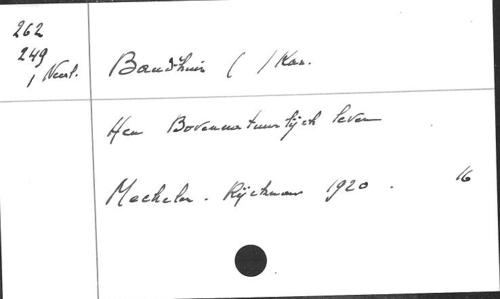 262
249
1 Neerl.
Baudhuin ( ) Kan.
Hen Bovennatuurlijch leven
Mechelen. Rijckmans 1920. 16